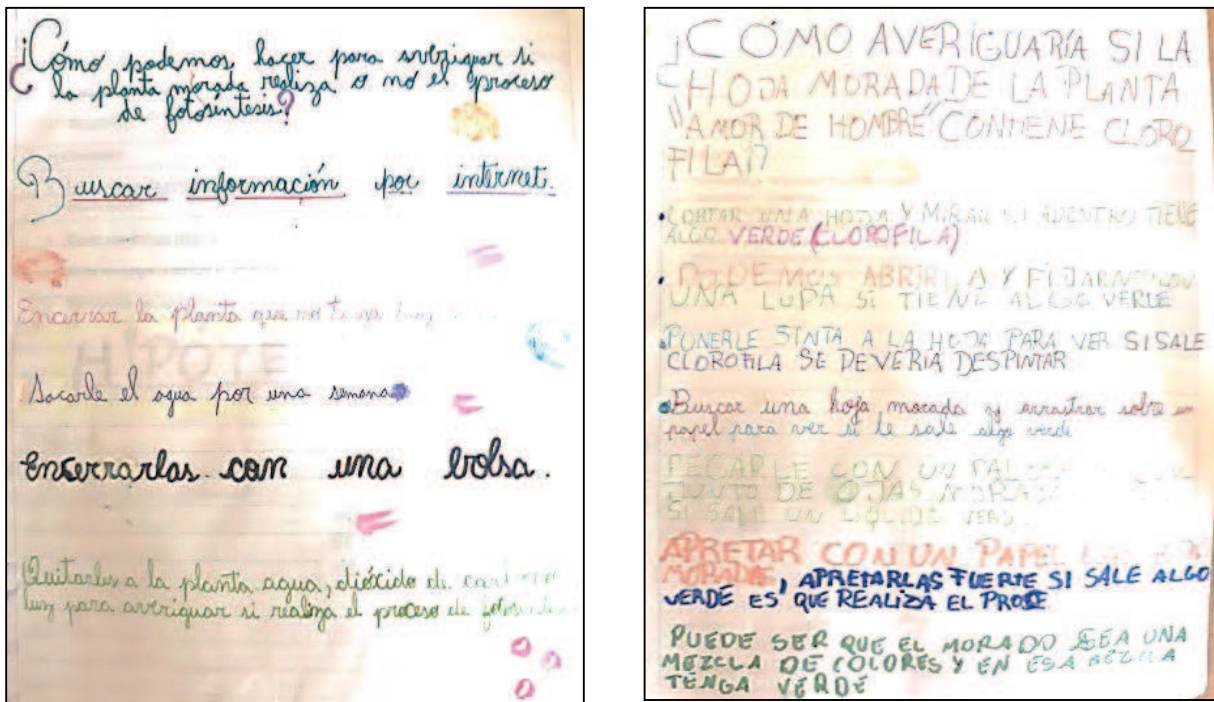 ¿Cómo podemos hacer para averiguar si
la planta morada realiza o no el proceso
de fotosíntesis?
Buscar información por internet.
Encerrar la planta que no tenga luz
HIPOTE
Sacarle el agua por una semana
Encerrarlas con una bolsa.
Quitarles a la planta agua, dióxido de carbono
luz para averiguar si realiza el proceso de
¿CÓMO AVERIGUARÍA SI LA
HOJA MORADA DE LA PLANTA
"AMOR DE HOMBRE" CONTIENE CLORO
FILA?
• CORTAR UNA HOJA Y MIRAR SI ADENTRO TIENE
ALGO VERDE (CLOROFILA)
• PODEMOS ABRIRLA Y FIJARNOS CON
UNA LUPA SI TIENE ALGO VERDE
PONERLE SINTA A LA HOJA PARA VER SI SALE
CLOROFILA SE DEVERIA DESPINTAR
• Buscar una hoja morada y arrastrar sobre un
papel para ver si le sale algo verde
PEGARLE CON UN
JUNTO DE OJAS
SI SALE UN LIQUIDO VERD
APRETAR CON UN PAPEL
MORADA, APRETARLAS FUERTE SI SALE ALGO
VERDE ES QUE REALIZA EL PROSE
PUEDE SER QUE EL MORADO SEA UNA
MEZCLA DE COLORES Y EN ESA MEZCLA
TENGA VERDE